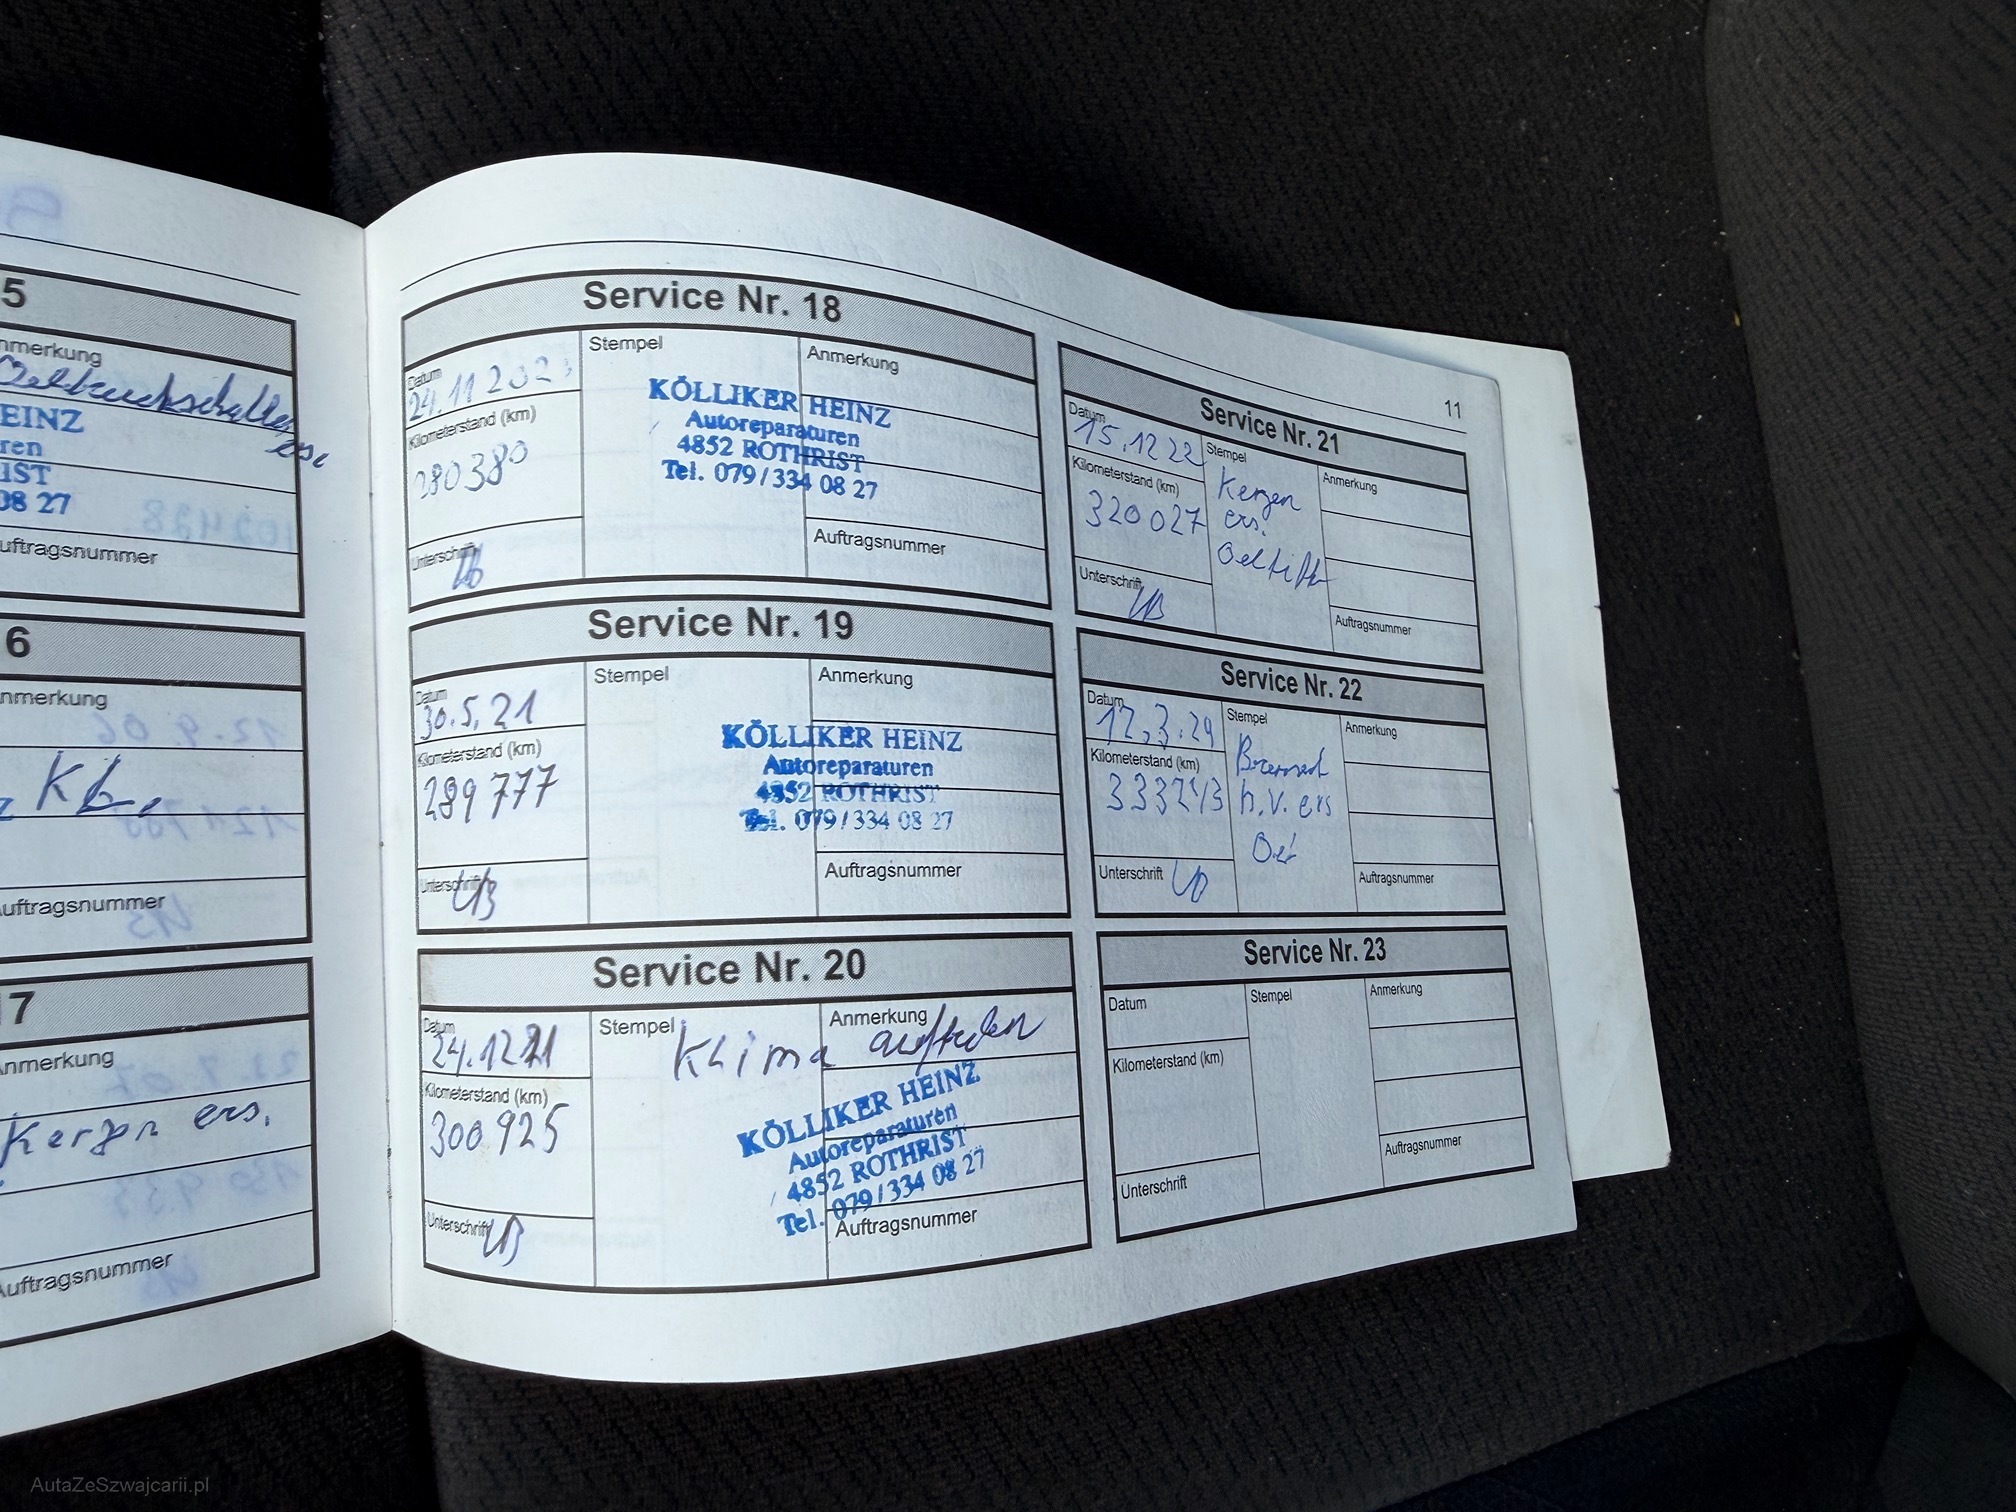 5
nmerkung
Oeldruckschalter
ers
EINZ
ren
IST
08 27
uftragsnummer
6
nmerkung
uftragsnummer
17
Anmerkung
Kerzen ers.
Auftragsnummer
Service Nr. 18
Datum
Kilometerstand (km)
280380
Unterschrift
Stempel
KÖLLIKER HEINZ
Autoreparaturen
4852 ROTHRIST
Tel. 079/334 08 27
Anmerkung
Auftragsnummer
Service Nr. 19
Datum
30.5.21
Kilometerstand (km)
289777
Unterschrift
Stempel
KÖLLIKER HEINZ
Autoreparaturen
4852 ROTHRIST
Tel. 079/334 08 27
Anmerkung
Auftragsnummer
Service Nr. 20
Datum
24.12 21
Kilometerstand (km)
300.925
Unterschrift
Stempel
Anmerkung
Klima auffüllen
KÖLLIKER HEINZ
Autoreparaturen
4852 ROTHRIST
Tel. 079/334 08 27
Auftragsnummer
11
Service Nr. 21
Datum
15.12 22
Kilometerstand (km)
320027
Unterschrift
Stempel
Kerzen
ers.
Oel filter
Anmerkung
Auftragsnummer
Service Nr. 22
Datum
12.3.24
Kilometerstand (km)
333243
Unterschrift
Stempel
h.v. ers
Oel
Anmerkung
Auftragsnummer
Service Nr. 23
Datum
Kilometerstand (km)
Unterschrift
Stempel
Anmerkung
Auftragsnummer
AutaZeSzwajcarii.pl